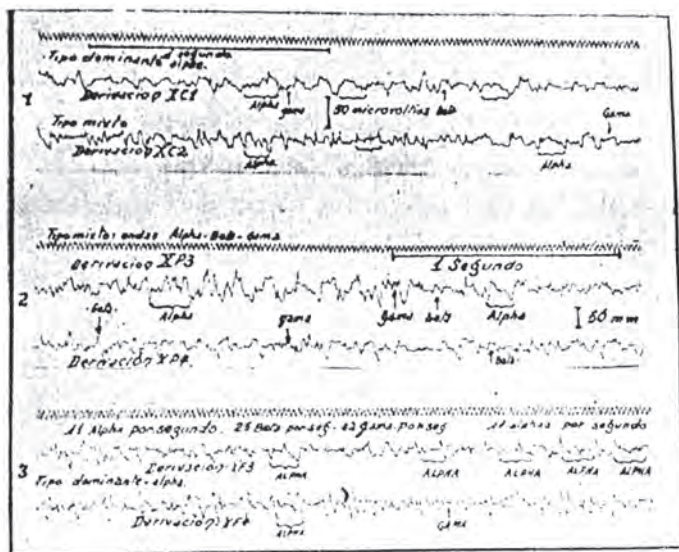 Tipo dominante alpha.
1 segundo
1
Derivacion XC1
Alpha
gama
50 microvoltios
bets
Gama
Tipo mixto
Derivacion XC2
Alpha
Alpha
Tipo mixtos ondas Alpha-Beta-Gama
Derivacion XP3
1 Segundo
2
bets.
Alpha
gama
gama
bets
Alpha
50 mm
Derivacion XP4
bets.
11 Alpha por segundo. 25 Bets por seg. Gama por seg
11 alphas por segundo
3
Derivacion: XF3
ALPHA
ALPHA
ALPHA
ALPHA
ALPHA
Tipo dominante-alpha.
Derivación: XF4
ALPHA
GAMA